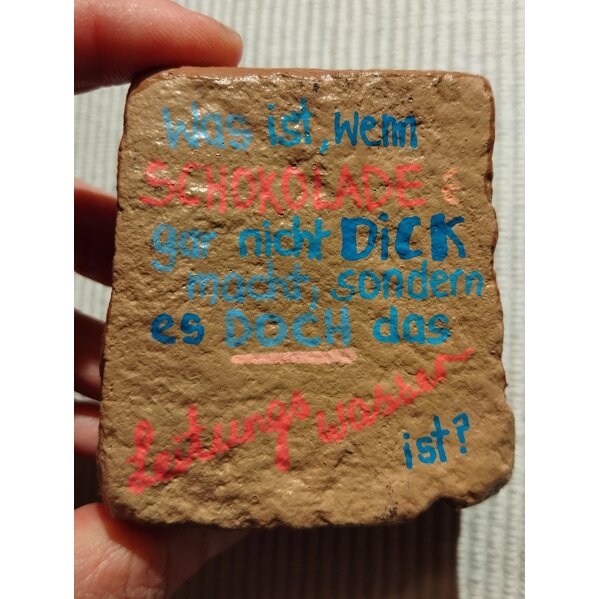 Was ist, wenn
SCHOKOLADE
gar nicht DiCK
macht, sondern
es DOCH das
Leitungswasser
ist?